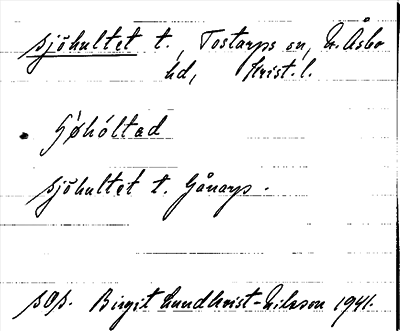 Sjöhultet t., Tostarps sn, N. Åsbo
hd, Krist. l.
Sjöhultet t. Gånarp.
sop. Birgit Lundkvist-Nilsson 1941.